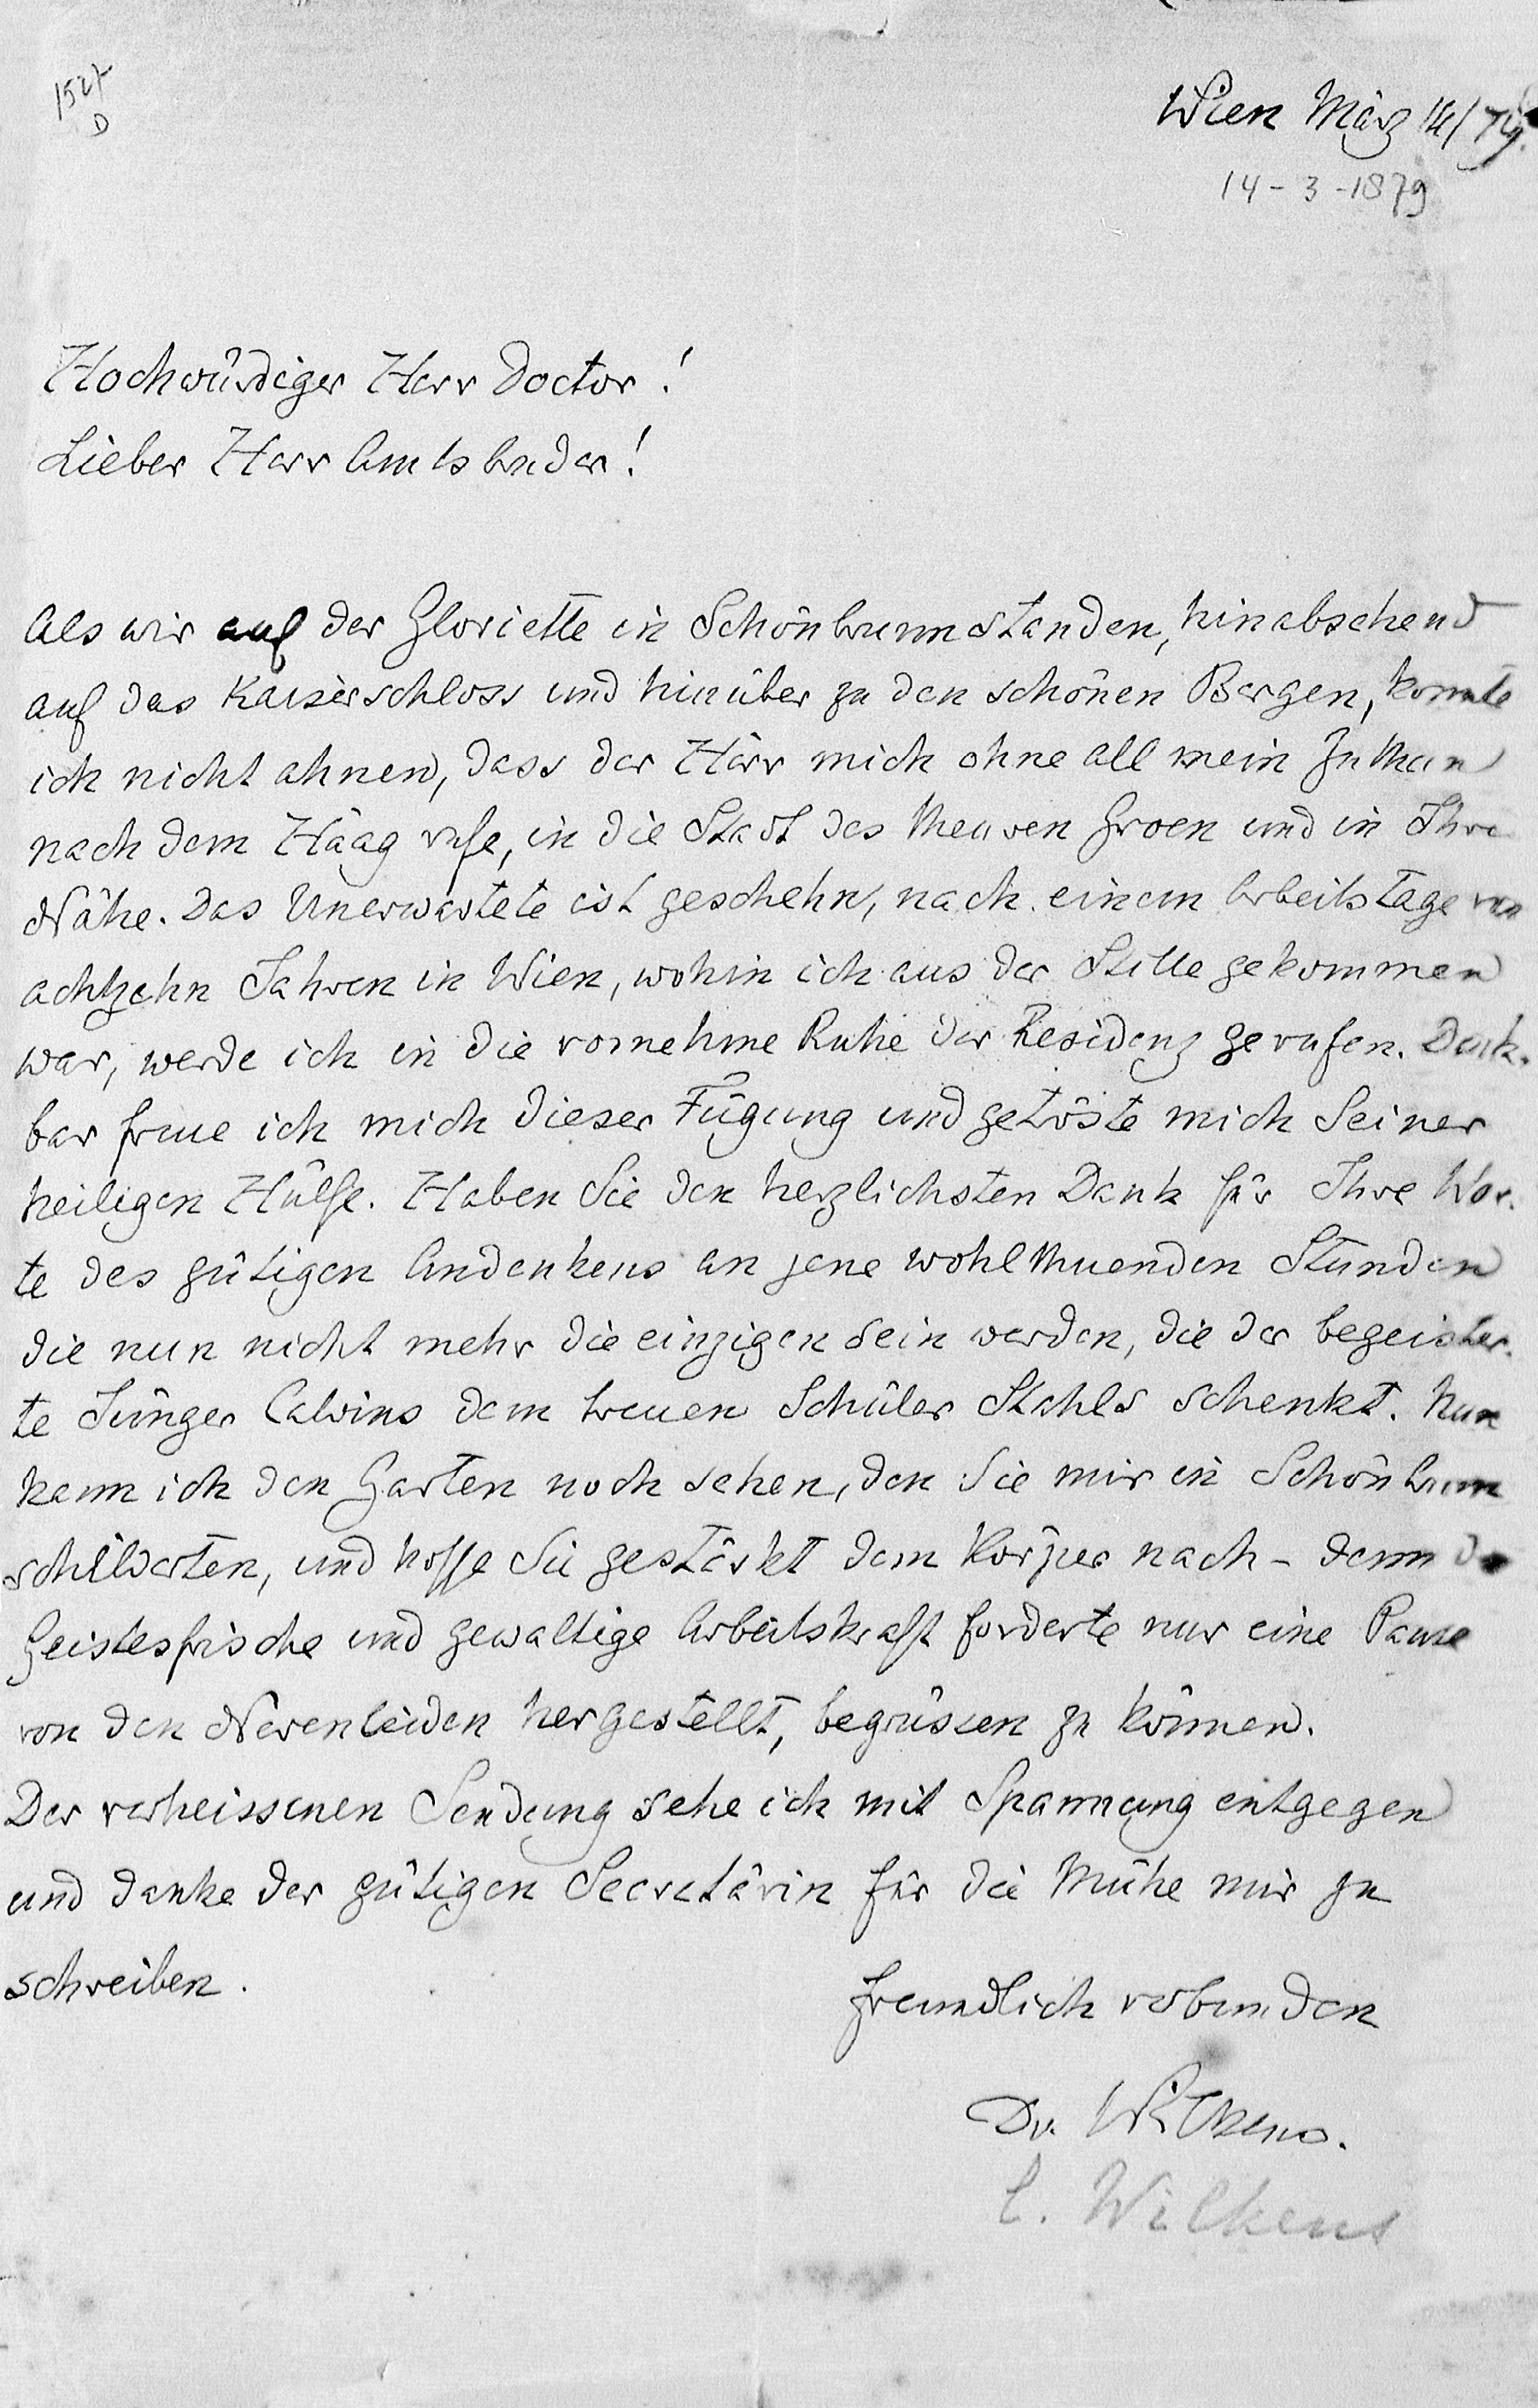 152x
D
Wien März 14/79.
14-3-1879
Hochwürdiger Herr Doctor!
Lieber Herr Amtsbruder!
Als wir auf der Gloriette in Schönbrunn standen, hinabsehend
auf das Kaiserschloss und hinüber zu den schönen Bergen, konnte
ich nicht ahnen, dass der Herr mich ohne all mein Zuthun
nach dem Haag rufe, in die Stadt des theuren Groen und in Ihre
Nähe. Das Unerwartete ist geschehn, nach einem Arbeitstage von
achtzehn Jahren in Wien, wohin ich aus der Stille gekommen
war, werde ich in die vornehme Ruhe der Residenz gerufen. Dank-
bar freue ich mich dieser Fügung und getröste mich Seiner
heiligen Hülfe. Haben Sie den herzlichsten Dank für Ihre Wor-
te des gütigen Andenkens an jene wohlthuenden Stunden
die nun nicht mehr die einzigen sein werden, die der begeister-
te Jünger Calvins dem treuen Schüler Stahls schenkt. Nun
kann ich den Garten noch sehen, den Sie mir in Schönbrunn
schilderten, und hoffe Sie gestärkt dem Körper nach - denn
Geistesfrische und gewaltige Arbeitskraft forderte nur eine Pause
von den Nervenleiden hergestellt, begrüssen zu können.
Der verheissenen Sendung sehe ich mit Spannung entgegen
und danke der gütigen Secretärin für die Mühe mir zu
schreiben.
freundlich verbunden
Dr. Wilkens.
C. Wilkens